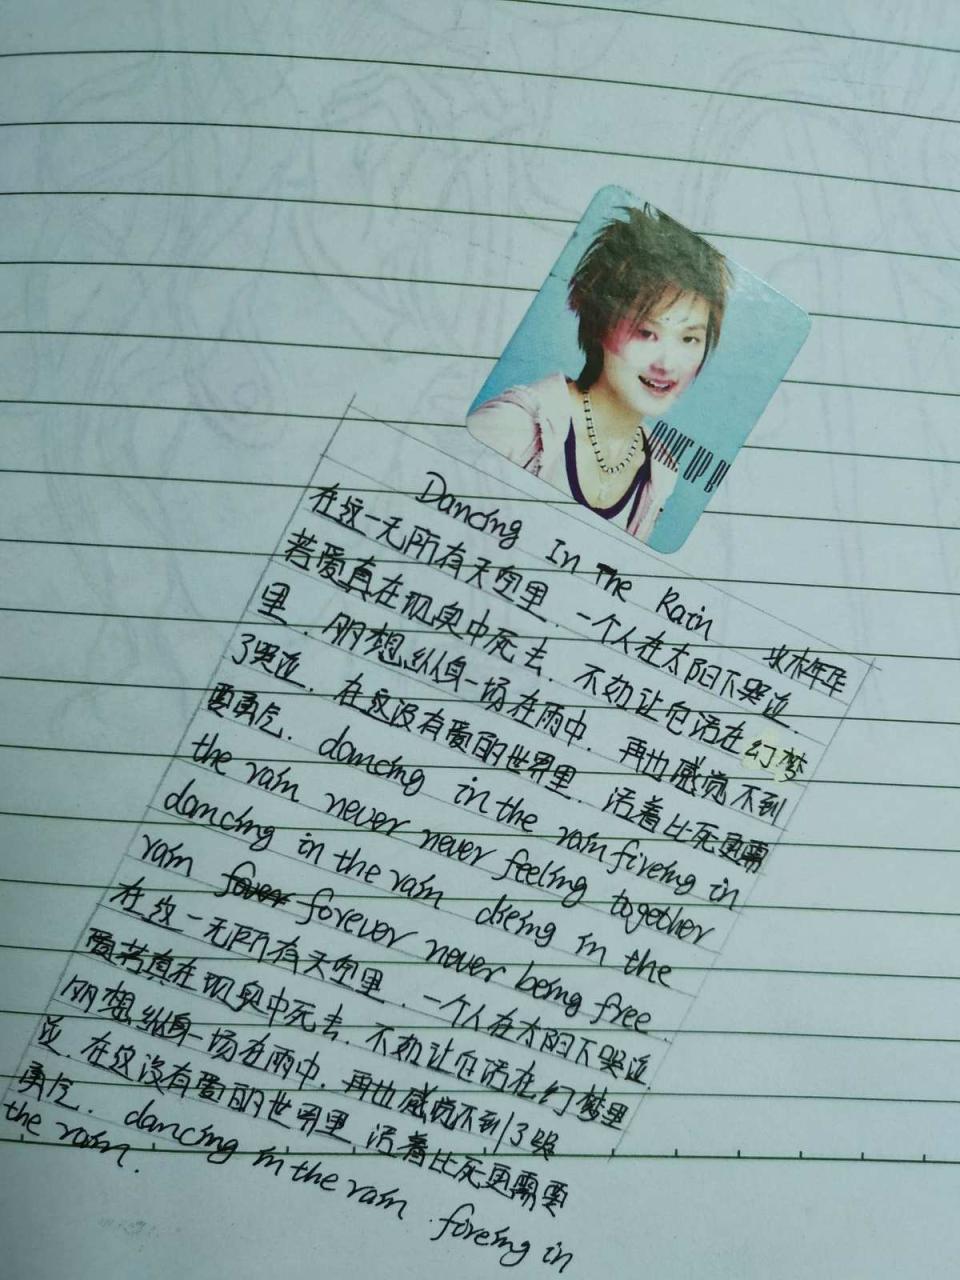 MAKE UP B
Dancing In The Rain 水木年华
在这一无所有天空里．一个人在太阳下哭泣．
若爱真在现奥中死去．不如让它活在幻梦
里．刚想纵身一场在雨中．再也感觉不到
哭泣．在这没有爱的世界里．活着比死更需
要勇气．dancing in the rain fireing in
the rain never never feeling together
dancing in the rain dieing in the
rain forever never being free.
在这一无所有天空里．一个人在太阳下哭泣．
爱若真在现奥中死去．不如让它活在幻梦里
刚想纵身一场在雨中．再也感觉不到哭
泣．在这没有爱的世界里．活着比死更需要
勇气．dancing in the rain．fireing in
the rain．